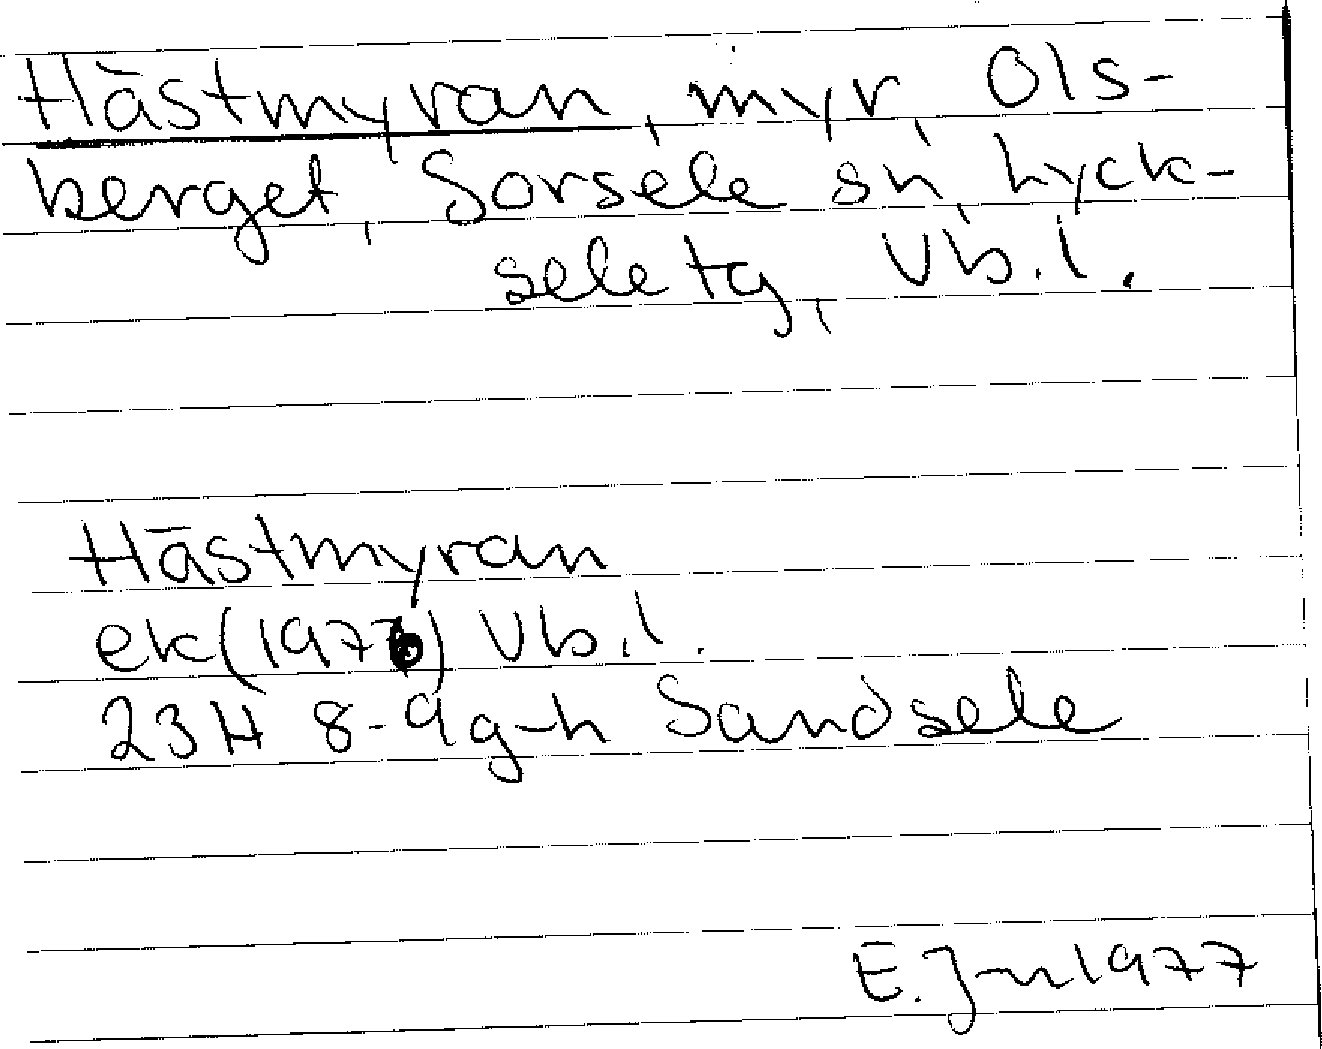 Hästmyran, myr, Ols-
berget, Sorsele sn, Lyck-
sele tg, Vb.l.
Hästmyran
ek(1976) Vb.l.
23H 8-9g-h Sandsele
E. J-n 1977